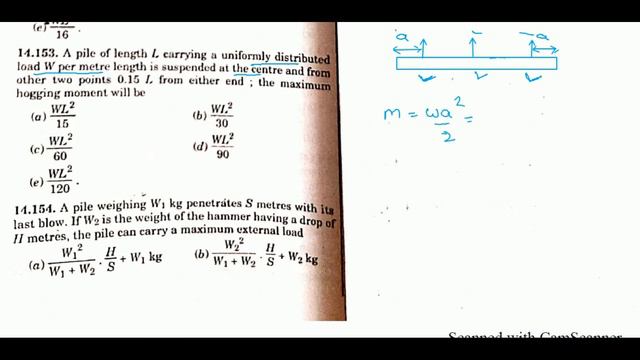 (e) WL²/16 .
14.153. A pile of length L carrying a uniformly distributed
load W per metre length is suspended at the centre and from
other two points 0.15 L from either end ; the maximum
hogging moment will be
(a) WL²/15 (b) WL²/30
(c) WL²/60 (d) WL²/90
(e) WL²/120 .
14.154. A pile weighing W₁ kg penetrates S metres with its
last blow. If W₂ is the weight of the hammer having a drop of
H metres, the pile can carry a maximum external load
(a) W₁²/W₁ + W₂ · H/S + W₁ kg (b) W₂²/W₁ + W₂ · H/S + W₂ kg
a a
m = wa²/2 =
Scanned with CamScanner